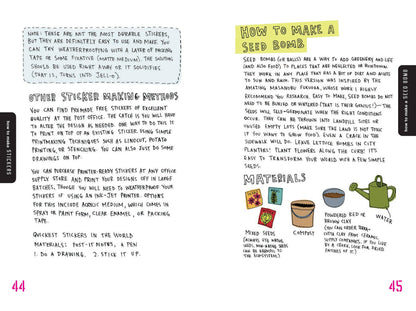 NOTE: THESE ARE NOT THE MOST DURABLE STICKERS,
BUT THEY ARE DEFINITELY EASY TO USE AND MAKE. YOU
CAN TRY WEATHERPROOFING WITH A LAYER OF PACKING
TAPE OR SOME FIXATIVE (MATTE MEDIUM). THE SOLUTION
SHOULD BE USED RIGHT AWAY OR IT SOLIDIFIES.
(THAT IS, TURNS INTO JELL-O).
OTHER STICKER MAKING METHODS
YOU CAN FIND PREMADE FREE STICKERS OF EXCELLENT
QUALITY AT THE POST OFFICE. THE CATCH IS YOU WILL HAVE
TO ALTER THE DESIGN AS NEEDED. ONE WAY TO DO THIS IS
TO PRINT ON TOP OF AN EXISTING STICKER USING SIMPLE
PRINTMAKING TECHNIQUES SUCH AS LINOCUT, POTATO
PRINTING, OR STENCILING. YOU CAN ALSO JUST DO SOME
DRAWINGS ON TOP.
YOU CAN PURCHASE PRINTER-READY STICKERS AT ANY OFFICE
SUPPLY STORE AND PRINT YOUR DESIGNS OFF IN LARGE
BATCHES, THOUGH YOU WILL NEED TO WEATHERPROOF YOUR
STICKERS IF USING AN INK-JET PRINTER. OPTIONS
FOR THIS INCLUDE ACRYLIC MEDIUM, WHICH COMES IN
SPRAY OR PAINT FORM, CLEAR ENAMEL, OR PACKING
TAPE.
QUICKEST STICKERS IN THE WORLD
MATERIALS: POST-IT NOTES, A PEN
1. DO A DRAWING. 2. STICK IT UP.
how to make STICKERS
44
HOW TO MAKE A
SEED BOMB
SEED BOMBS (OR BALLS) ARE A WAY TO ADD GREENERY AND LIFE
(AND ALSO FOOD) TO PLACES THAT ARE NEGLECTED OR RUNDOWN.
THEY WORK IN ANY PLACE THAT HAS A BIT OF DIRT AND ACCESS
TO SUN AND RAIN. THIS VERSION WAS INSPIRED BY THE
AMAZING MASANOBU FUKUOKA, WHOSE WORK I HIGHLY
RECOMMEND YOU RESEARCH. EASY TO MAKE, SEED BOMBS DO NOT
NEED TO BE BURIED OR WATERED (THAT IS THEIR GENIUS!)—THE
SEEDS WILL SELF-GERMINATE WHEN THE RIGHT CONDITIONS
OCCUR. THEY CAN BE THROWN INTO LANDFILLS, SHUT OR
EMPTY LOTS (MAKE SURE THE LAND IS NOT TOXIC
IF YOU WANT TO GROW FOOD). EVEN A CRACK IN THE
SIDEWALK WILL DO. LEAVE LETTUCE BOMBS IN CITY
PLANTERS! PLANT FLOWERS ALONG THE CURB! IT'S
EASY TO TRANSFORM YOUR WORLD WITH A FEW SIMPLE
SEEDS.
MATERIALS
MIXED SEEDS
(ALWAYS USE NATIVE
SEEDS, NON-NATIVE SEEDS
CAN BE HARMFUL TO
THE ECOSYSTEM)
COMPOST
POWDERED RED OR
BROWN CLAY
(YOU CAN ORDER TERRA-
COTTA CLAY FROM CERAMIC
SUPPLY COMPANIES. IF YOU LIVE
BY A CREEK, LOOK FOR DRIED
PATCHES OF IT)
WATER
how to make a SEED BOMB
45